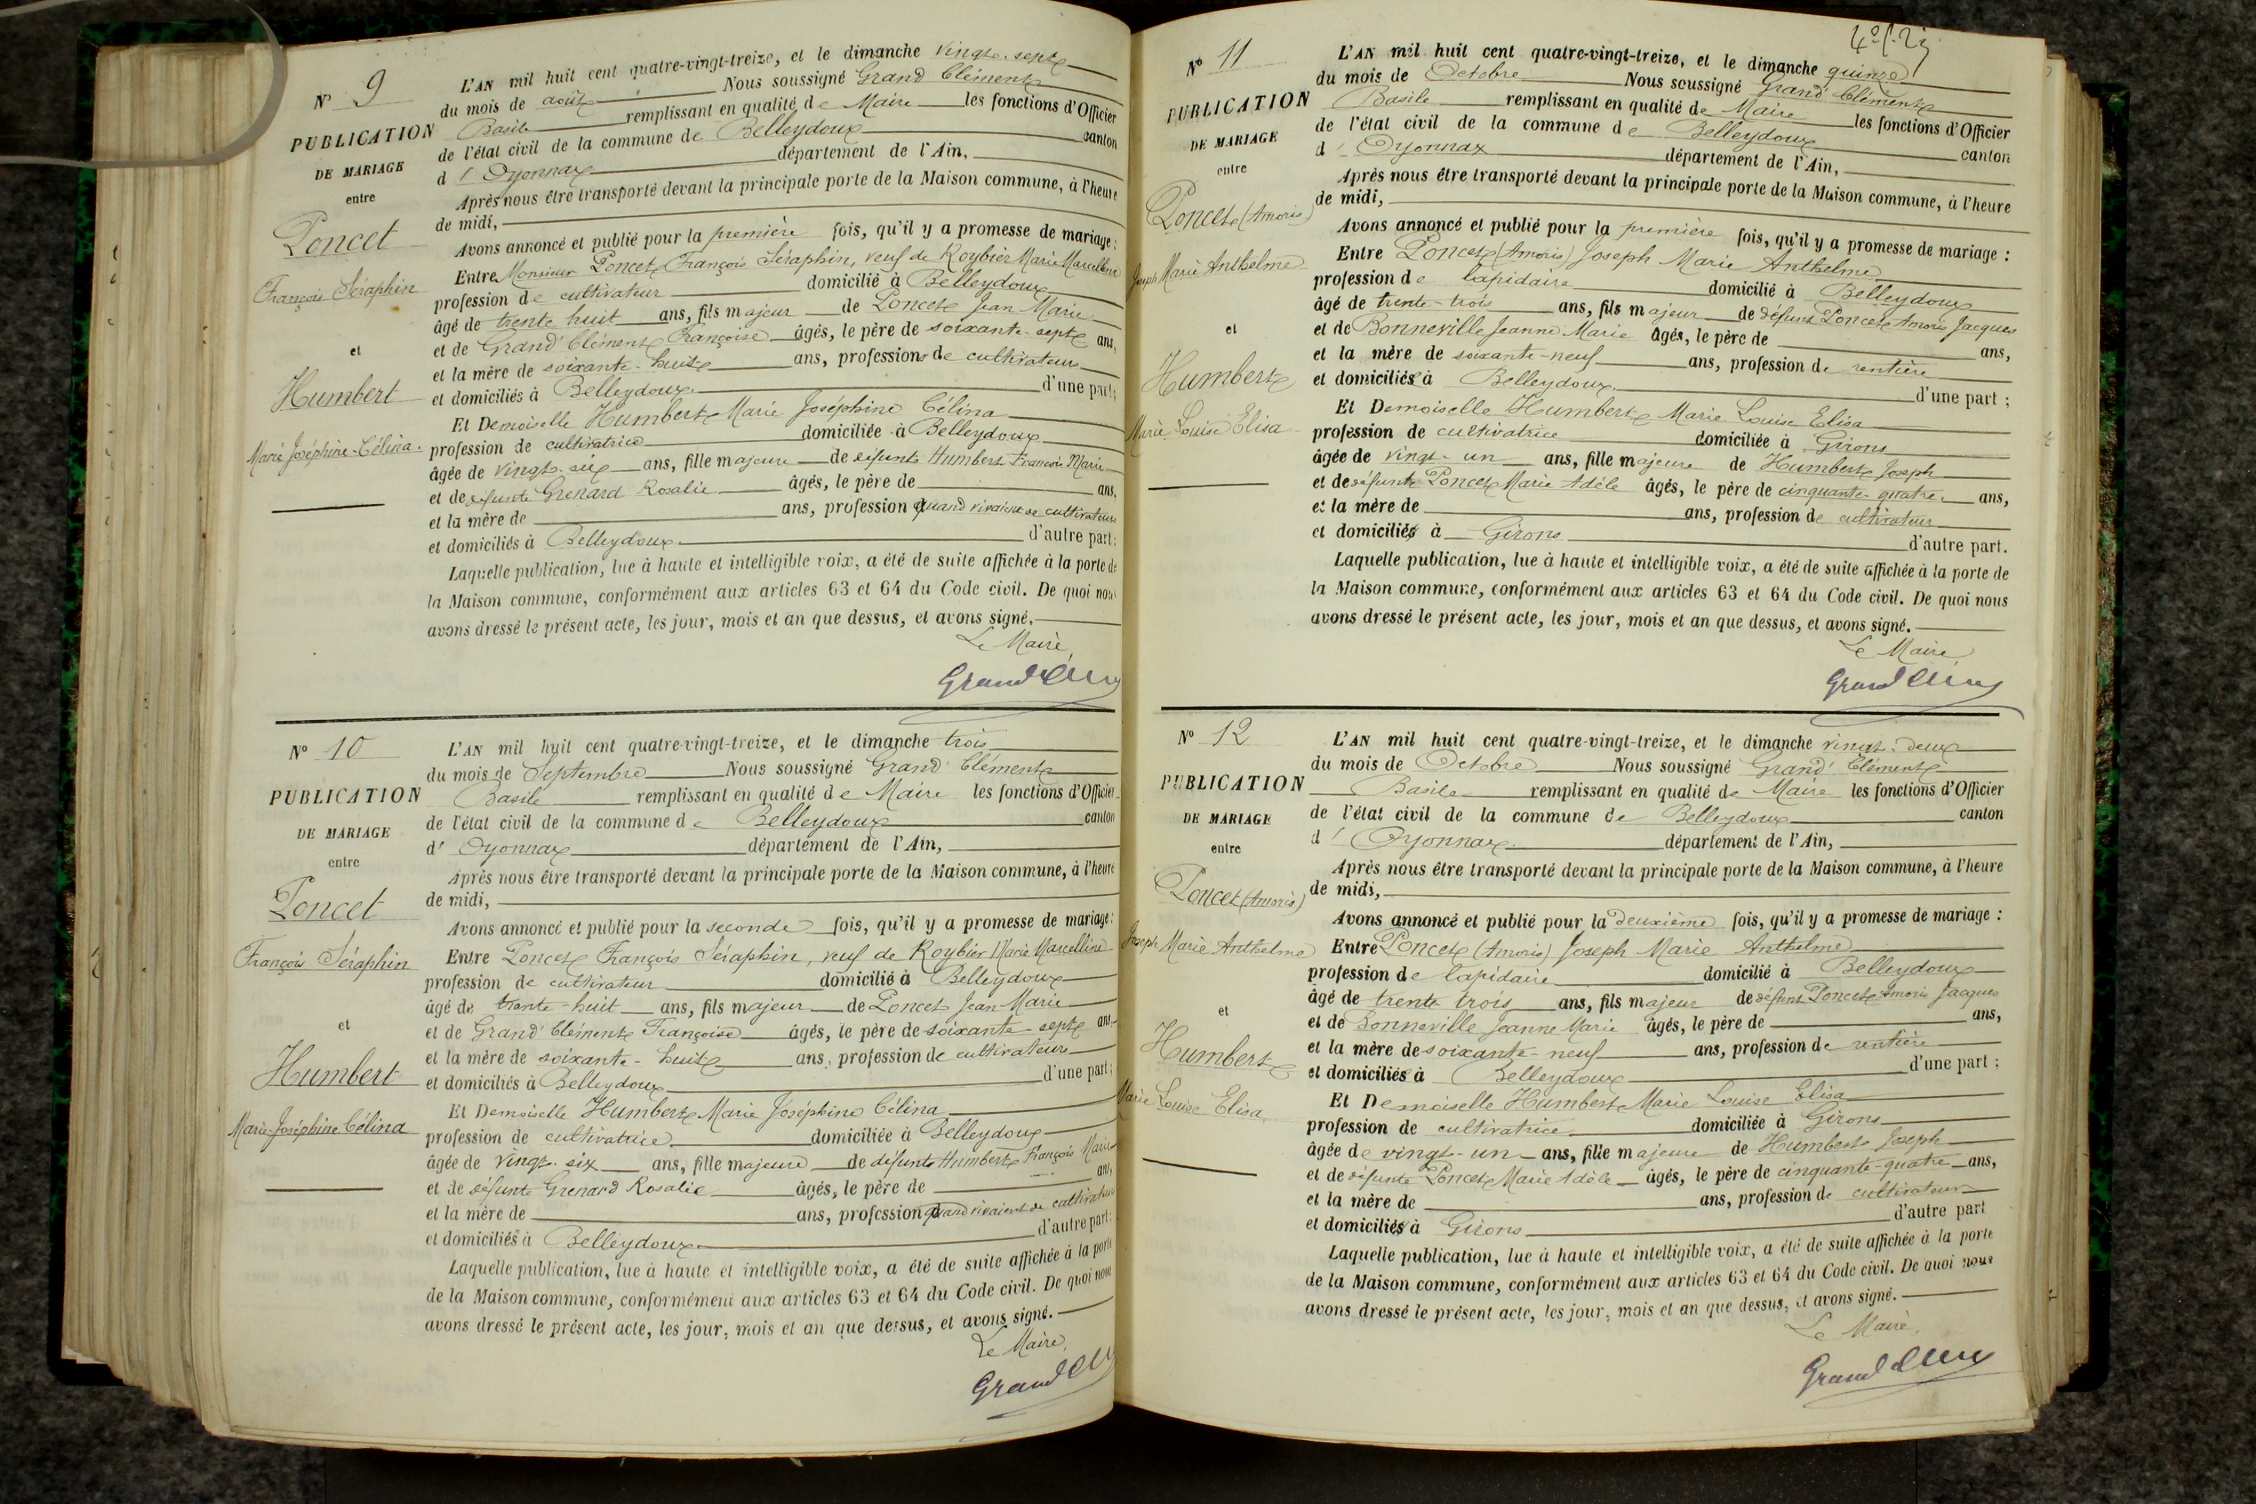 N° 9
PUBLICATION
DE MARIAGE
entre
Poncet
François Séraphin
et
Humbert
Marie Joséphine Célina.
L'AN mil huit cent quatre-vingt-treize, et le dimanche vingt-sept
du mois de août Nous soussigné Grand Clément
Basile remplissant en qualité de Maire les fonctions d'Officier
de l'état civil de la commune de Belleydoux canton
d'Oyonnax département de l'Ain,
Après nous être transporté devant la principale porte de la Maison commune, à l'heure
de midi,
Avons annoncé et publié pour la première fois, qu'il y a promesse de mariage :
Entre Monsieur Poncet François Séraphin, veuf de Roybier Marie Marcelline
profession de cultivateur domicilié à Belleydoux
âgé de trente huit ans, fils majeur de Poncet Jean Marie
et de Grand Clément Françoise âgés, le père de soixante-sept ans,
et la mère de soixante-huit ans, profession de cultivateurs
et domiciliés à Belleydoux. d'une part ;
Et Demoiselle Humbert Marie Joséphine Célina
profession de cultivatrice domiciliée à Belleydoux
âgée de vingt-six ans, fille majeure de défunts Humbert François Marie
et de défunte Grenard Rosalie âgés, le père de ans,
et la mère de ans, profession quand vivaient de cultivateurs
et domiciliés à Belleydoux. d'autre part.
Laquelle publication, lue à haute et intelligible voix, a été de suite affichée à la porte de
la Maison commune, conformément aux articles 63 et 64 du Code civil. De quoi nous
avons dressé le présent acte, les jour, mois et an que dessus, et avons signé.
Le Maire,
Grand Clém
N° 10
PUBLICATION
DE MARIAGE
entre
Poncet
François Séraphin
et
Humbert
Marie Joséphine Célina
L'AN mil huit cent quatre-vingt-treize, et le dimanche trois
du mois de Septembre Nous soussigné Grand Clément
Basile remplissant en qualité de Maire les fonctions d'Officier
de l'état civil de la commune de Belleydoux canton
d'Oyonnax département de l'Ain,
Après nous être transporté devant la principale porte de la Maison commune, à l'heure
de midi,
Avons annoncé et publié pour la seconde fois, qu'il y a promesse de mariage :
Entre Poncet François Séraphin, veuf de Roybier Marie Marcelline
profession de cultivateur domicilié à Belleydoux
âgé de trente-huit ans, fils majeur de Poncet Jean Marie
et de Grand Clément Françoise âgés, le père de soixante sept ans,
et la mère de soixante-huit ans, profession de cultivateurs
et domiciliés à Belleydoux d'une part ;
Et Demoiselle Humbert Marie Joséphine Célina
profession de cultivatrice domiciliée à Belleydoux
âgée de vingt-six ans, fille majeure de défunts Humbert François Marie
et de défunte Grenard Rosalie âgés, le père de ans,
et la mère de ans, profession quand vivaient de cultivateurs
et domiciliés à Belleydoux d'autre part.
Laquelle publication, lue à haute et intelligible voix, a été de suite affichée à la porte
de la Maison commune, conformément aux articles 63 et 64 du Code civil. De quoi nous
avons dressé le présent acte, les jour, mois et an que dessus, et avons signé.
Le Maire,
Grand Cl
N° 11
PUBLICATION
DE MARIAGE
entre
Poncet (Amoris)
Joseph Marie Anthelme
et
Humbert
Marie Louise Elisa
L'AN mil huit cent quatre-vingt-treize, et le dimanche quinze
du mois de Octobre Nous soussigné Grand Clément
Basile remplissant en qualité de Maire les fonctions d'Officier
de l'état civil de la commune de Belleydoux canton
d'Oyonnax département de l'Ain,
Après nous être transporté devant la principale porte de la Maison commune, à l'heure
de midi,
Avons annoncé et publié pour la première fois, qu'il y a promesse de mariage :
Entre Poncet (Amoris) Joseph Marie Anthelme
profession de lapidaire domicilié à Belleydoux
âgé de trente-trois ans, fils majeur de défunt Poncet Amoris Jacques
et de Bonneville Jeanne Marie âgés, le père de ans,
et la mère de soixante-neuf ans, profession de rentière
et domiciliés à Belleydoux. d'une part ;
Et Demoiselle Humbert Marie Louise Elisa
profession de cultivatrice domiciliée à Girons
âgée de vingt-un ans, fille majeure de Humbert Joseph
et de défunte Poncet Marie Adèle âgés, le père de cinquante-quatre ans,
et la mère de ans, profession de cultivateur
et domiciliés à Girons d'autre part.
Laquelle publication, lue à haute et intelligible voix, a été de suite affichée à la porte de
la Maison commune, conformément aux articles 63 et 64 du Code civil. De quoi nous
avons dressé le présent acte, les jour, mois et an que dessus, et avons signé.
Le Maire
Grand Clém
N° 12
PUBLICATION
DE MARIAGE
entre
Poncet (Amoris)
Joseph Marie Anthelme
et
Humbert
Marie Louise Elisa
L'AN mil huit cent quatre-vingt-treize, et le dimanche vingt-deux
du mois de Octobre Nous soussigné Grand Clément
Basile remplissant en qualité de Maire les fonctions d'Officier
de l'état civil de la commune de Belleydoux canton
d'Oyonnax département de l'Ain,
Après nous être transporté devant la principale porte de la Maison commune, à l'heure
de midi,
Avons annoncé et publié pour la deuxième fois, qu'il y a promesse de mariage :
Entre Poncet (Amoris) Joseph Marie Anthelme
profession de lapidaire domicilié à Belleydoux
âgé de trente trois ans, fils majeur de défunt Poncet Amoris Jacques
et de Bonneville Jeanne Marie âgés, le père de ans,
et la mère de soixante-neuf ans, profession de rentière
et domiciliés à Belleydoux d'une part ;
Et Demoiselle Humbert Marie Louise Elisa
profession de cultivatrice domiciliée à Girons
âgée de vingt-un ans, fille majeure de Humbert Joseph
et de défunte Poncet Marie Adèle âgés, le père de cinquante-quatre ans,
et la mère de ans, profession de cultivateur
et domiciliés à Girons d'autre part
Laquelle publication, lue à haute et intelligible voix, a été de suite affichée à la porte
de la Maison commune, conformément aux articles 63 et 64 du Code civil. De quoi nous
avons dressé le présent acte, les jour, mois et an que dessus, et avons signé.
Le Maire,
Grand Clém